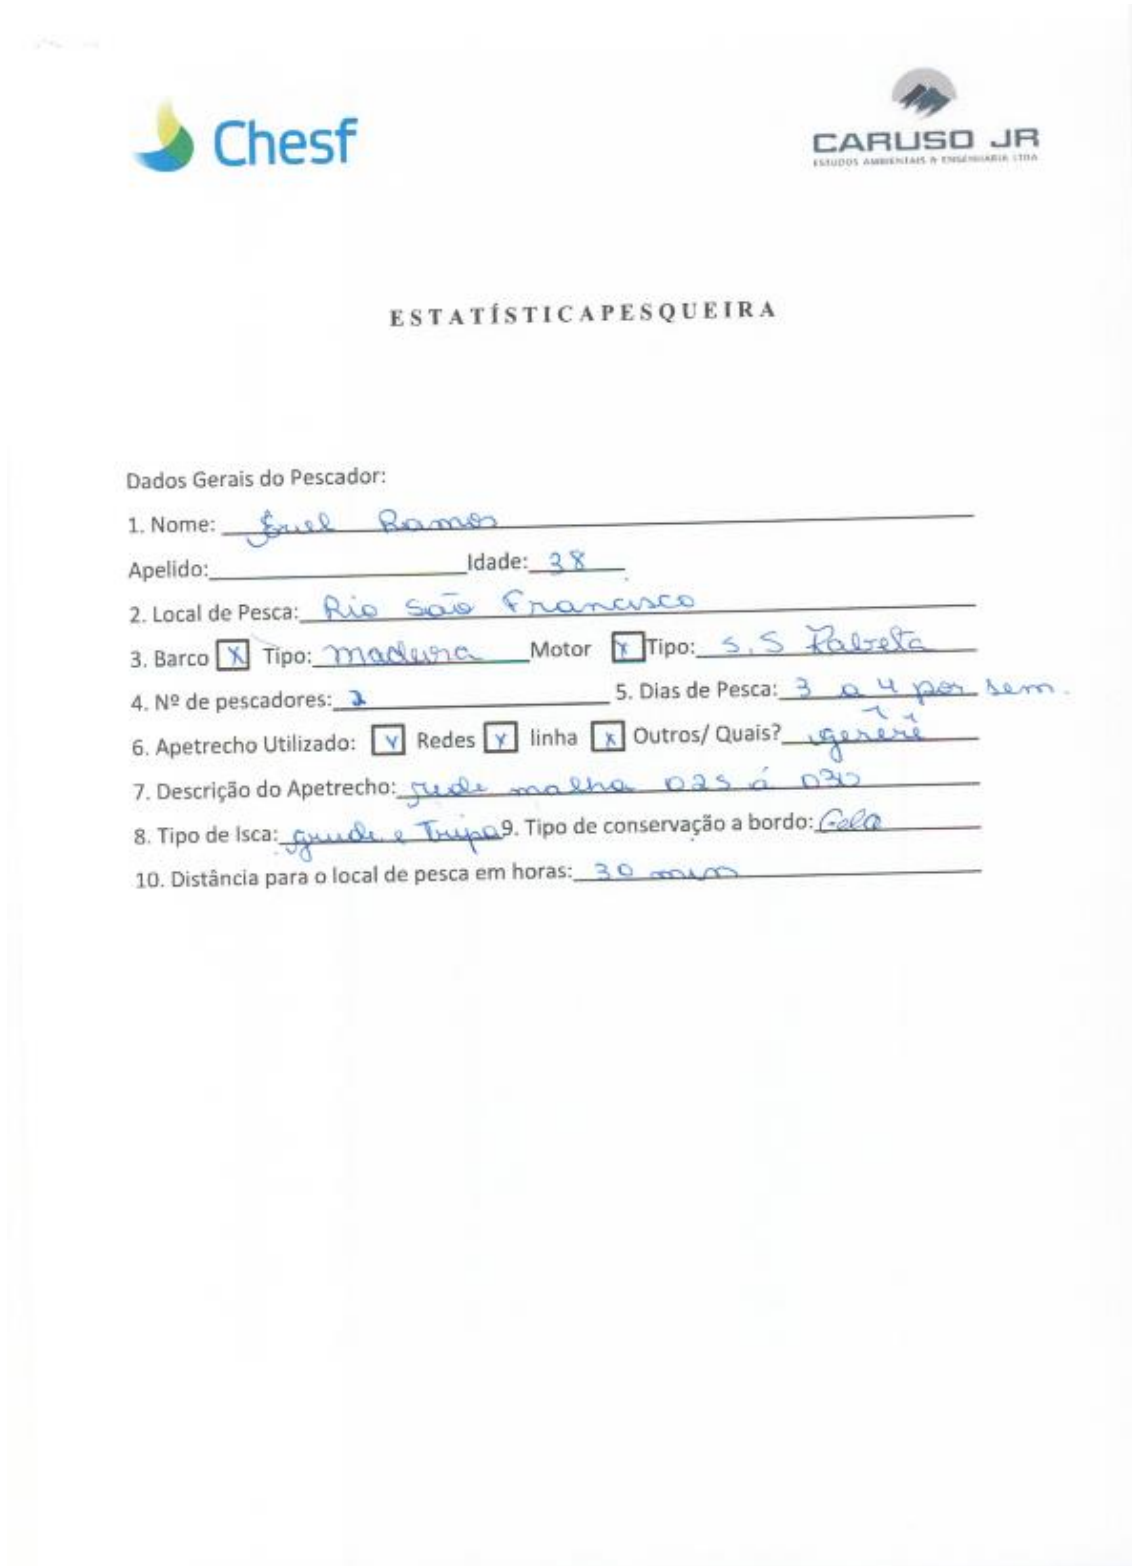 Chesf
CARUSO JR
ESTUDOS AMBIENTAIS & ENGENHARIA LTDA
ESTATÍSTICAPESQUEIRA
Dados Gerais do Pescador:
1. Nome: Ramos
Apelido: Idade: 38
2. Local de Pesca: Rio São Francisco
3. Barco X Tipo: madeira Motor X Tipo: 5.5 Rabeta
4. Nº de pescadores: 2 5. Dias de Pesca: 3 a 4 por sem.
6. Apetrecho Utilizado: X Redes X linha X Outros/ Quais?
7. Descrição do Apetrecho: rede malha 025 á 030
8. Tipo de Isca: grude e Tripa 9. Tipo de conservação a bordo: Gelo
10. Distância para o local de pesca em horas: 30 min